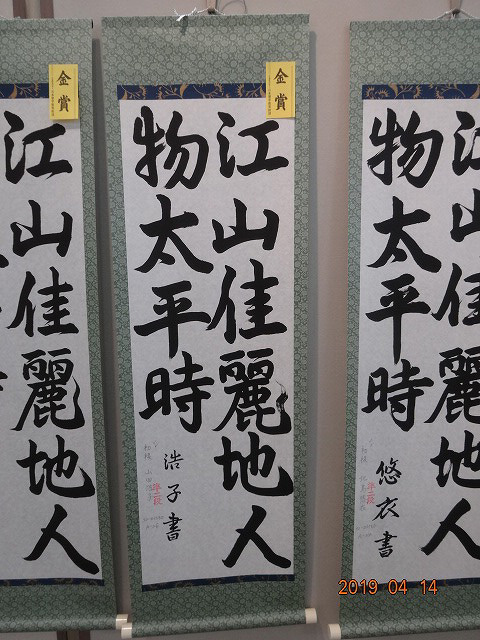 金賞
江山佳麗地人
金賞
江山佳麗地人
物太平時
浩子書
準二段
江山佳麗地人
物太平時
悠衣書
準二段
2019 04 14